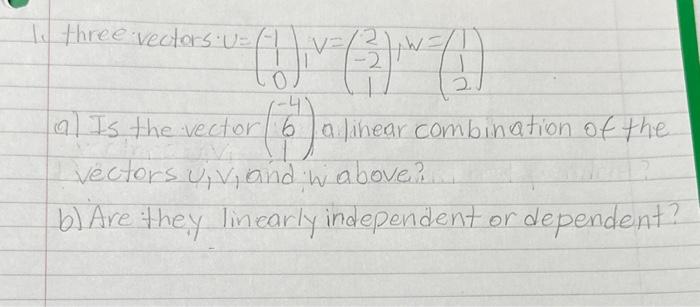 1. three vectors: U = (-1 1 0), V = (2 -2 1), W = (1 1 2)
a) Is the vector (-4 6 1) a linear combination of the
vectors u, v, and w above?
b) Are they linearly independent or dependent?